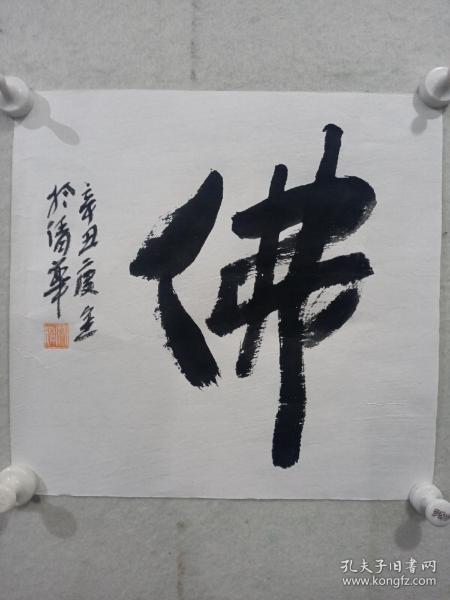 佛
辛丑度金
於清华
孔夫子旧书网
www.kongfz.com